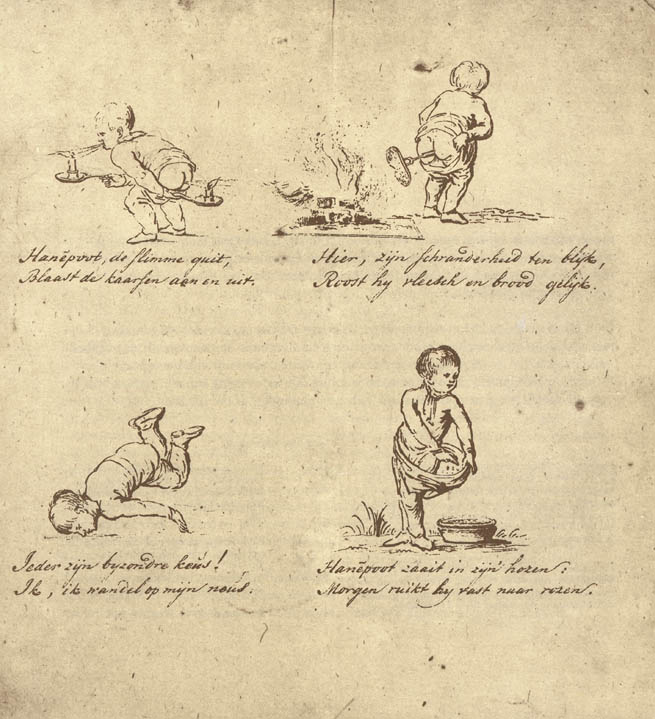 Hanëpoot, de slimme guit,
Blaast de kaarsen aan en uit.
Hier, zijn schranderheid ten blijk,
Roost hy vleesch en brood gelijk.
Ieder zijn byzondre keus!
Ik, ik wandel op mijn neus.
Hanëpoot zaait in zijn hozen:
Morgen ruikt hy vast naar rozen.